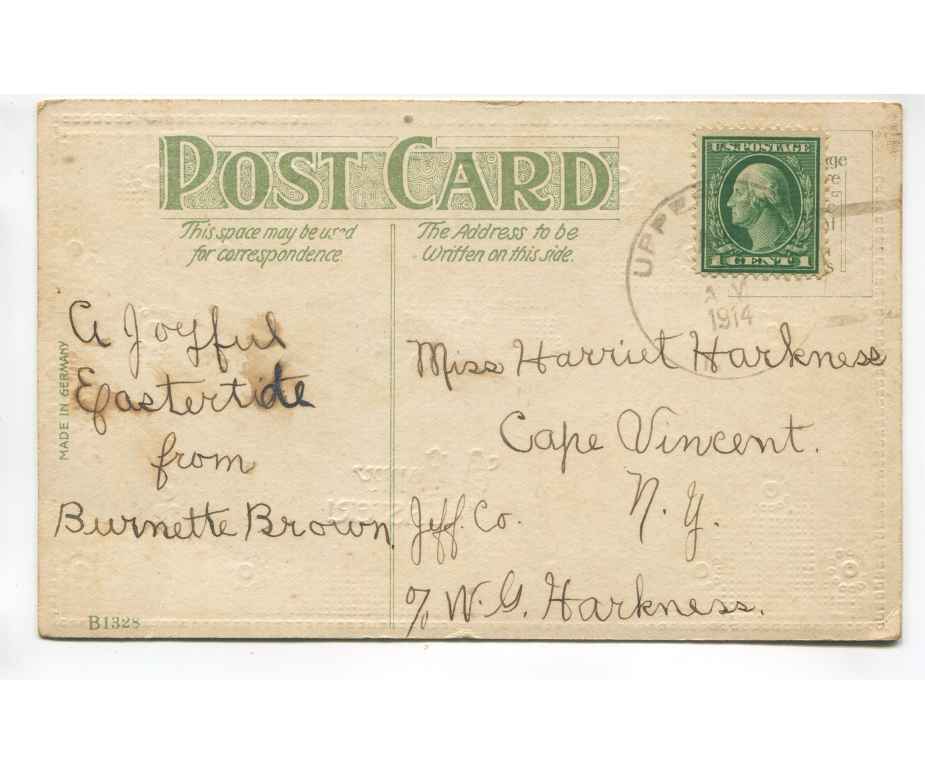 POST CARD
This space may be used
for correspondence
The Address to be
Written on this side.
U.S. POSTAGE
1 CENT 1
1914
A Joyful
Eastertide
from
Burnette Brown.
Miss Harriet Harkness
Cape Vincent.
N.Y.
Jeff. Co.
℅ W.G. Harkness.
MADE IN GERMANY
B1328